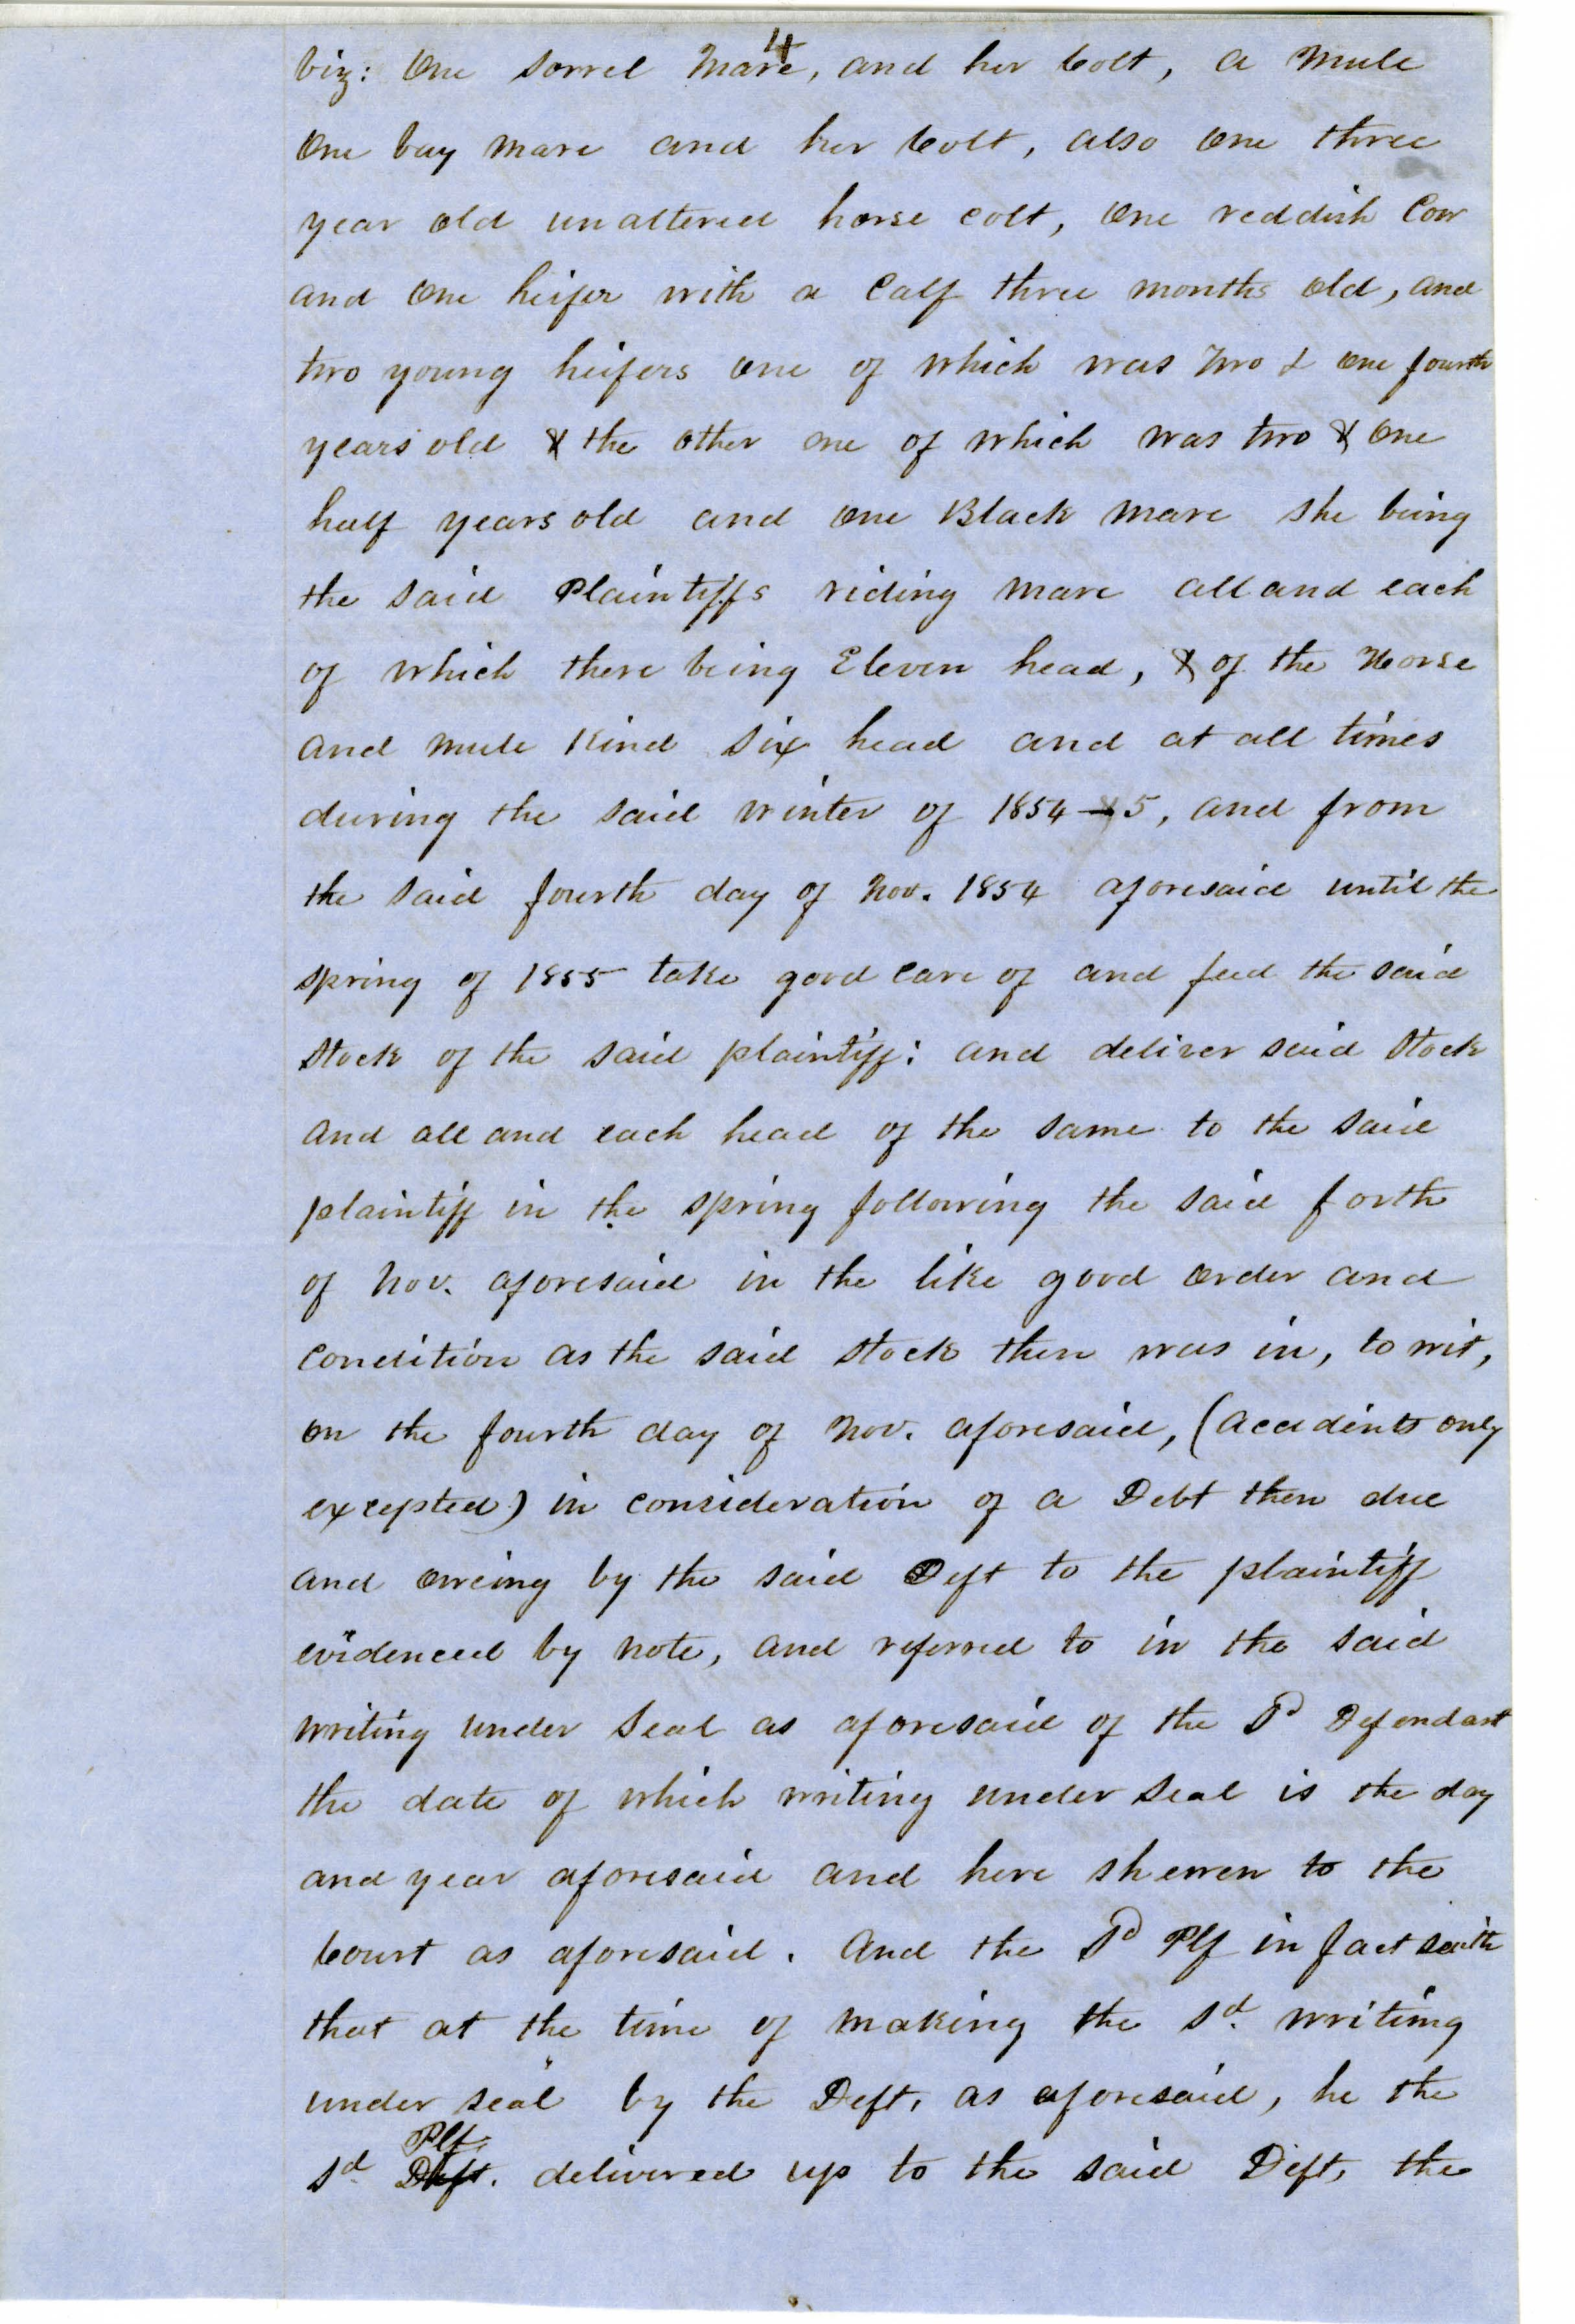 4
viz: One sorrel mare, and her Colt, a mule
One bay mare and her Colt, also one three
year old unaltered horse colt, One reddish Cow
and one heifer with a Calf three months old, and
two young heifers one of which was Two & one fourth
years old & the other one of which was two & one
half years old and one Black mare she being
the said Plaintiffs riding mare all and each
of which there being Eleven head, & of the Horse
and mule Kind six head and at all times
during the said winter of 1854-5, and from
the said fourth day of Nov. 1854 aforesaid until the
spring of 1855 take good care of and feed the said
stock of the said plaintiff: and deliver said Stock
and all and each head of the same to the said
plaintiff in the spring following the said forth
of Nov. aforesaid in the like good order and
condition as the said stock then was in, to wit,
on the fourth day of Nov. aforesaid, (accidents only
excepted) in consideration of a Debt then due
and oweing by the said Deft to the plaintiff
evidenced by note, and referred to in the said
writing under seal as aforesaid of the Sd Defendant
the date of which writing under seal is the day
and year aforesaid and here shewen to the
Court as aforesaid. And the Sd Plf in fact saith
that at the time of making the sd. writing
under seal by the Deft. as aforesaid, he the
Plf.
sd Deft. delivered up to the said Deft, the